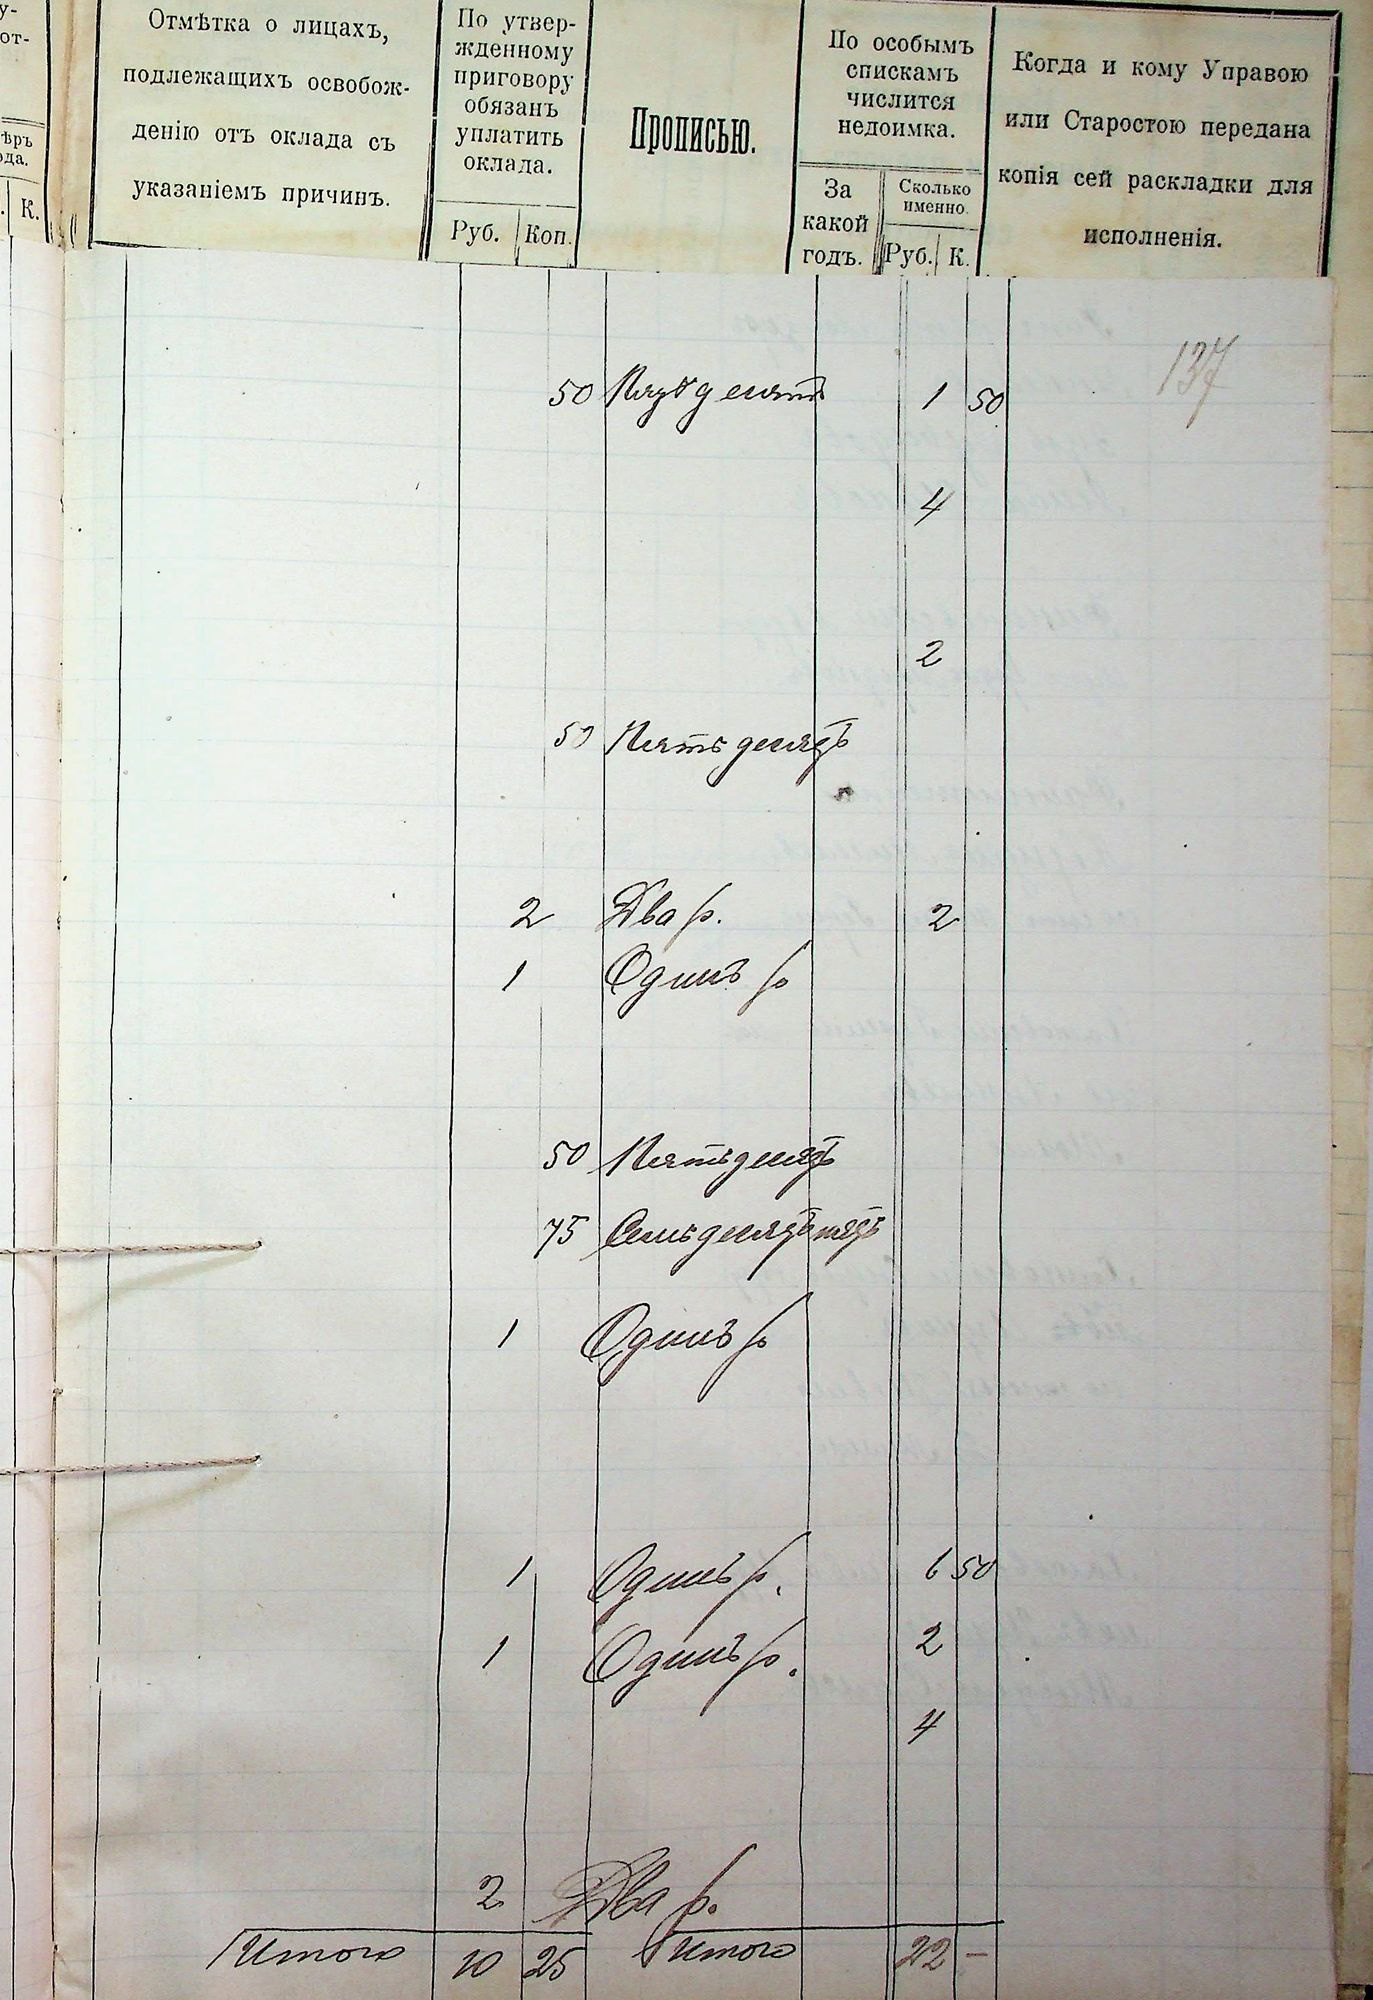 у-
от-
ѣръ
ода.
К.
Отмѣтка о лицахъ,
подлежащихъ освобож-
денію отъ оклада съ
указаніемъ причинъ.
По утвер-
жденному
приговору
обязанъ
уплатить
оклада.
Руб. Коп.
Прописью.
По особымъ
спискамъ
числится
недоимка.
За
какой
годъ.
Сколько
именно.
Руб. К.
Когда и кому Управою
или Старостою передана
копія сей раскладки для
исполненія.
137
50 Пятьдесятъ 1 50
4
2
50 Пятьдесятъ
2 Два р. 2
1 Одинъ р
50 Пятьдесятъ
75 Семьдесятъ пять
1 Одинъ р
1 Одинъ р. 6 50
1 Одинъ р. 2
4
2 Два р.
Итого 10 25 Итого 22 —